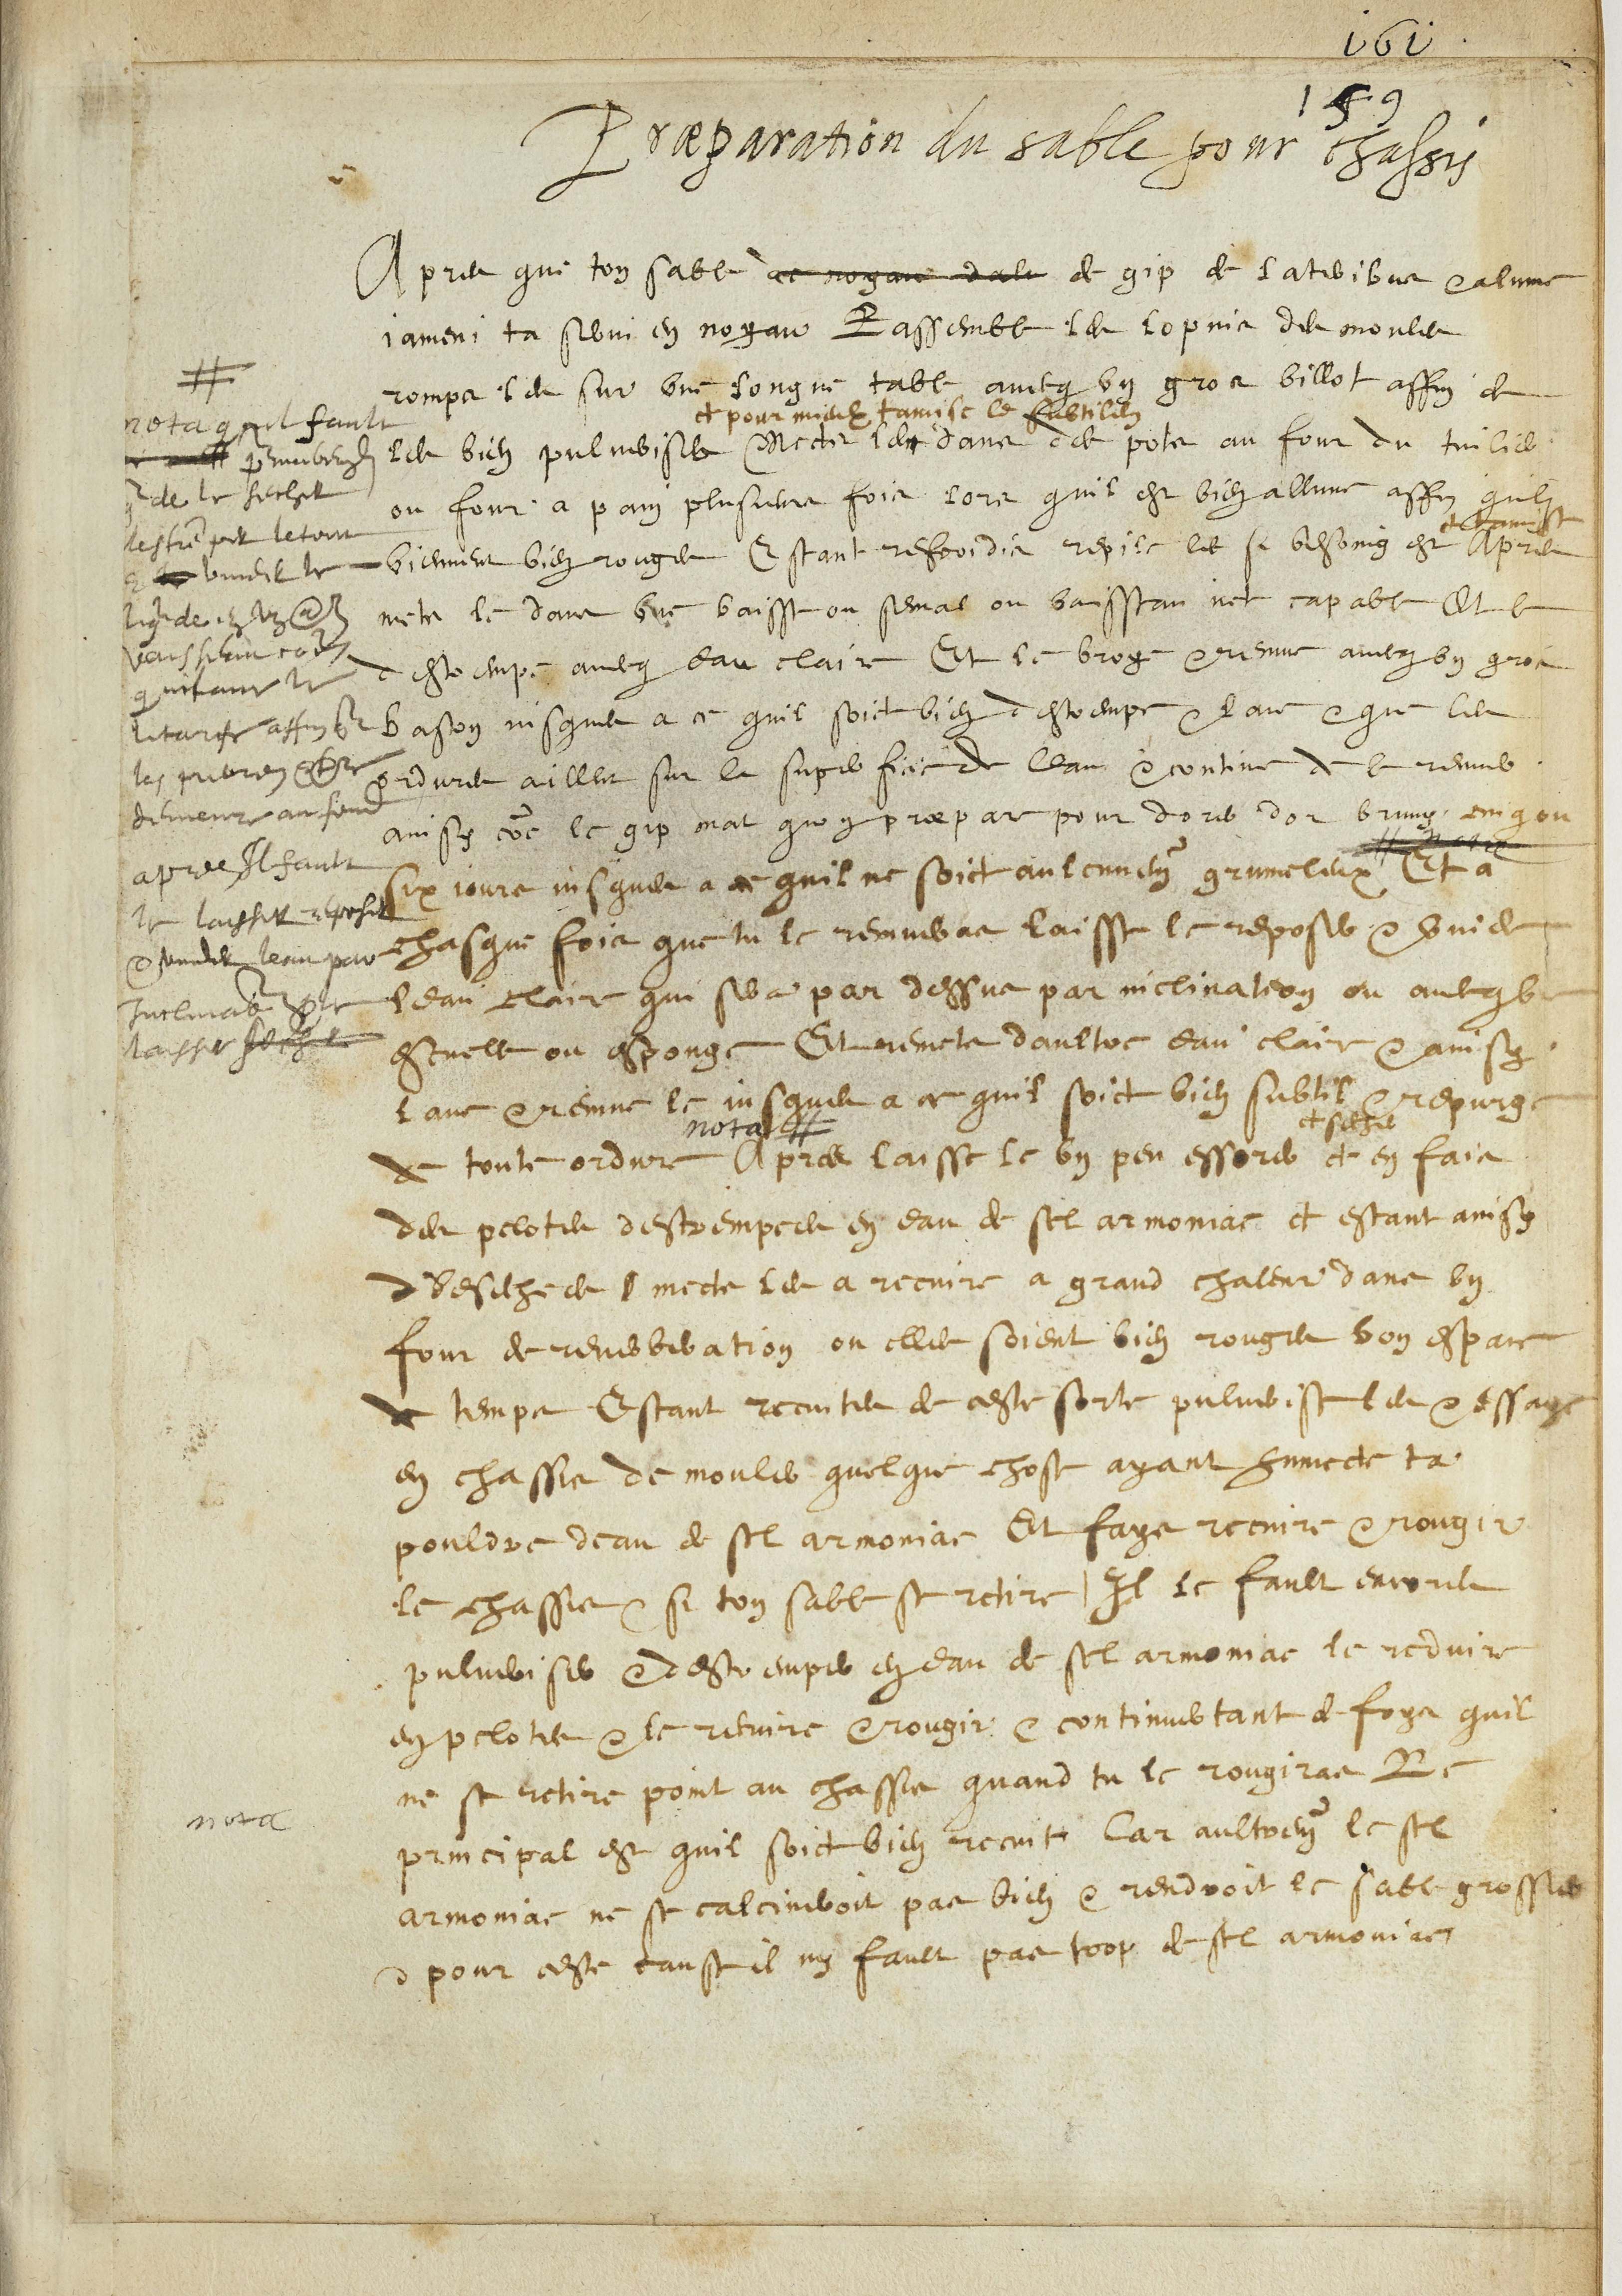 161
159
Præparation du sable pour chassis
Apres que ton sable de gip de lateribus & alume
iameni ta servi en noyau Rassemble les lopins des moules
romps les sur une longue table avecq un gros billot affin de
et pour mieulx tamise le subtilem
les bien pulveriser Mects les dans des pots au four du tuilier
ou four a pain plusieurs fois lors quil est bien allume affin quils
et tamise
vienment bien rouges Estant refroidis repile les si besoing est Apres
mets le dans une vaisse ou semal ou vaisseau net capable Et le
destrempe avecq eau claire Et le broye & remue avecq un gros
baston iusques a ce quil soict bien destrempe & lave & que les
ordures aillent sur la superficie de leau & continue de le remuer
ainsy coe le gip mat quon præpare pour dorer dor bruny cinq ou
six iours iusques a ce quil ne soict aulcunem grumeleux Et a
chasque fois que tu le remueras laisse le reposer & vuide
leau claire qui sera par dessus par inclination ou avecq une
escuelle ou esponge Et remets daultre eau claire & ainsy
lave & remue le iusques a ce quil soict bien subtil & repurge
nota #
et secher
de toute ordure Apres laisse le un peu essorer et en fais
des pelotes destrempees en eau de sel armoniac et estant ainsy
deseichees mects les a recuire a grand chaleur dans un
four de reverberation ou elles soient bien rouges bon espace
de temps Estant recuites de ceste sorte pulverise les & essaye
en chassis de mouler quelque chose ayant humecte ta
pouldre deau de sel armoniac Et fays recuire & rougir
le chassis & si ton sable se retire Il le fault encores
pulveriser & destremper en eau de sel armoniac le reduire
en pelotes & le recuire & rougir & continuer tant de foys quil
ne se retire point au chassis quand tu le rougiras Le
principal est quil soict bien recuit Car aultrem le sel
armoniac ne se calcineroit pas bien & rendroit le sable grossier
& pour ceste cause il ny fault pas trop de sel armoniac
#
nota quil fault
de le secher
destremper le tout
vaisseau
litarge affin
demeure au fond
apres Il fault
le laisser reposer
& vuider leau par
laisser
nota